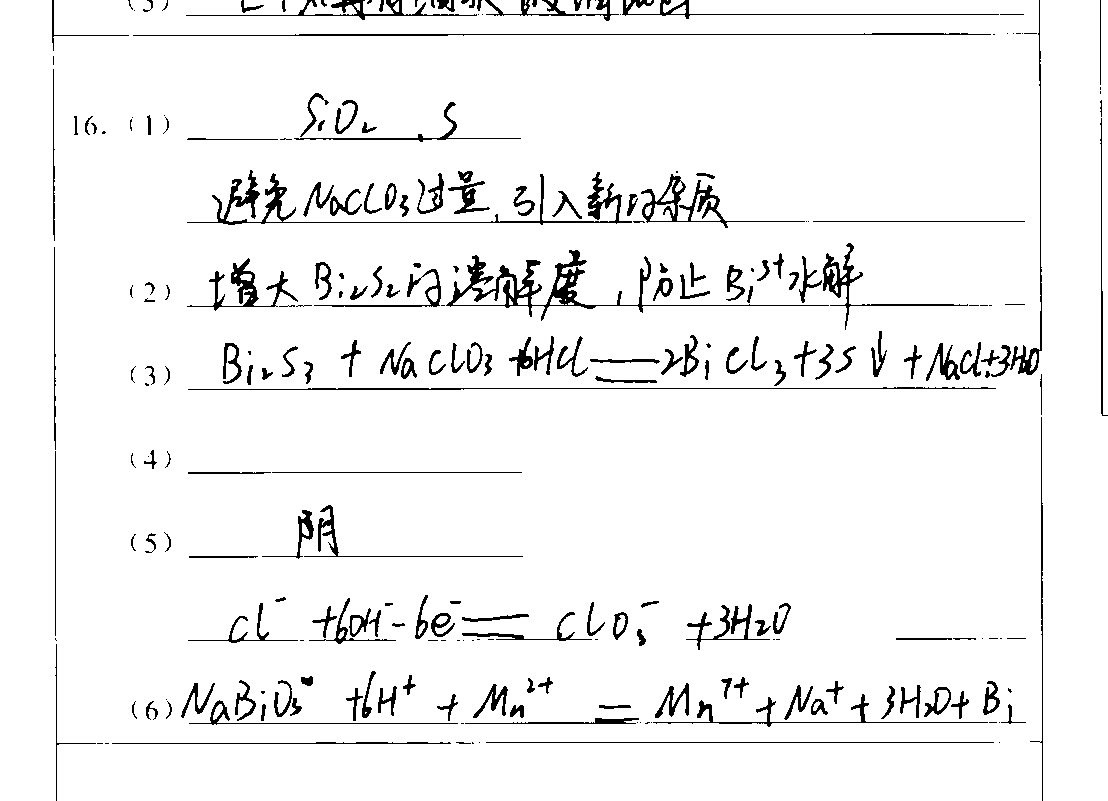 (3)
16. (1) SiO₂ . S
避免NaClO₃过量,引入新的杂质
(2) 增大Bi₂S₂的溃解度,防止Bi³⁺水解
(3) Bi₂S₃ + NaClO₃ +6HCl══2BiCl₃+3S↓+NaCl+3H₂O
(4)
(5) 阴
Cl⁻ +6OH⁻-6e⁻══ ClO₃⁻ +3H₂O
(6) NaBiO₃ +6H⁺ + Mn²⁺ ═ Mn⁷⁺+Na⁺+3H₂O+Bi